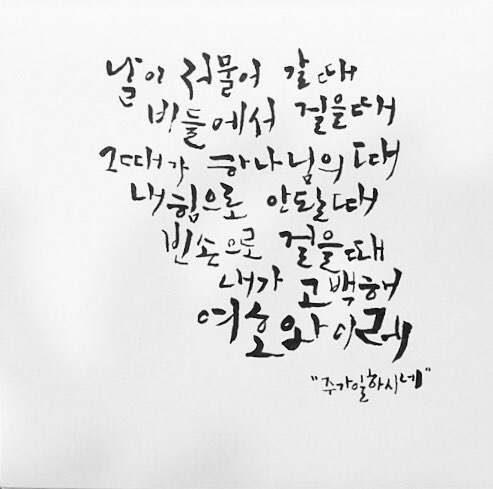 날이 저물어 갈때
빈들에서 걸을때
그때가 하나님의 때
내힘으로 안될때
빈손으로 걸을때
내가 고백해
여호와이레
"주가일하시네"